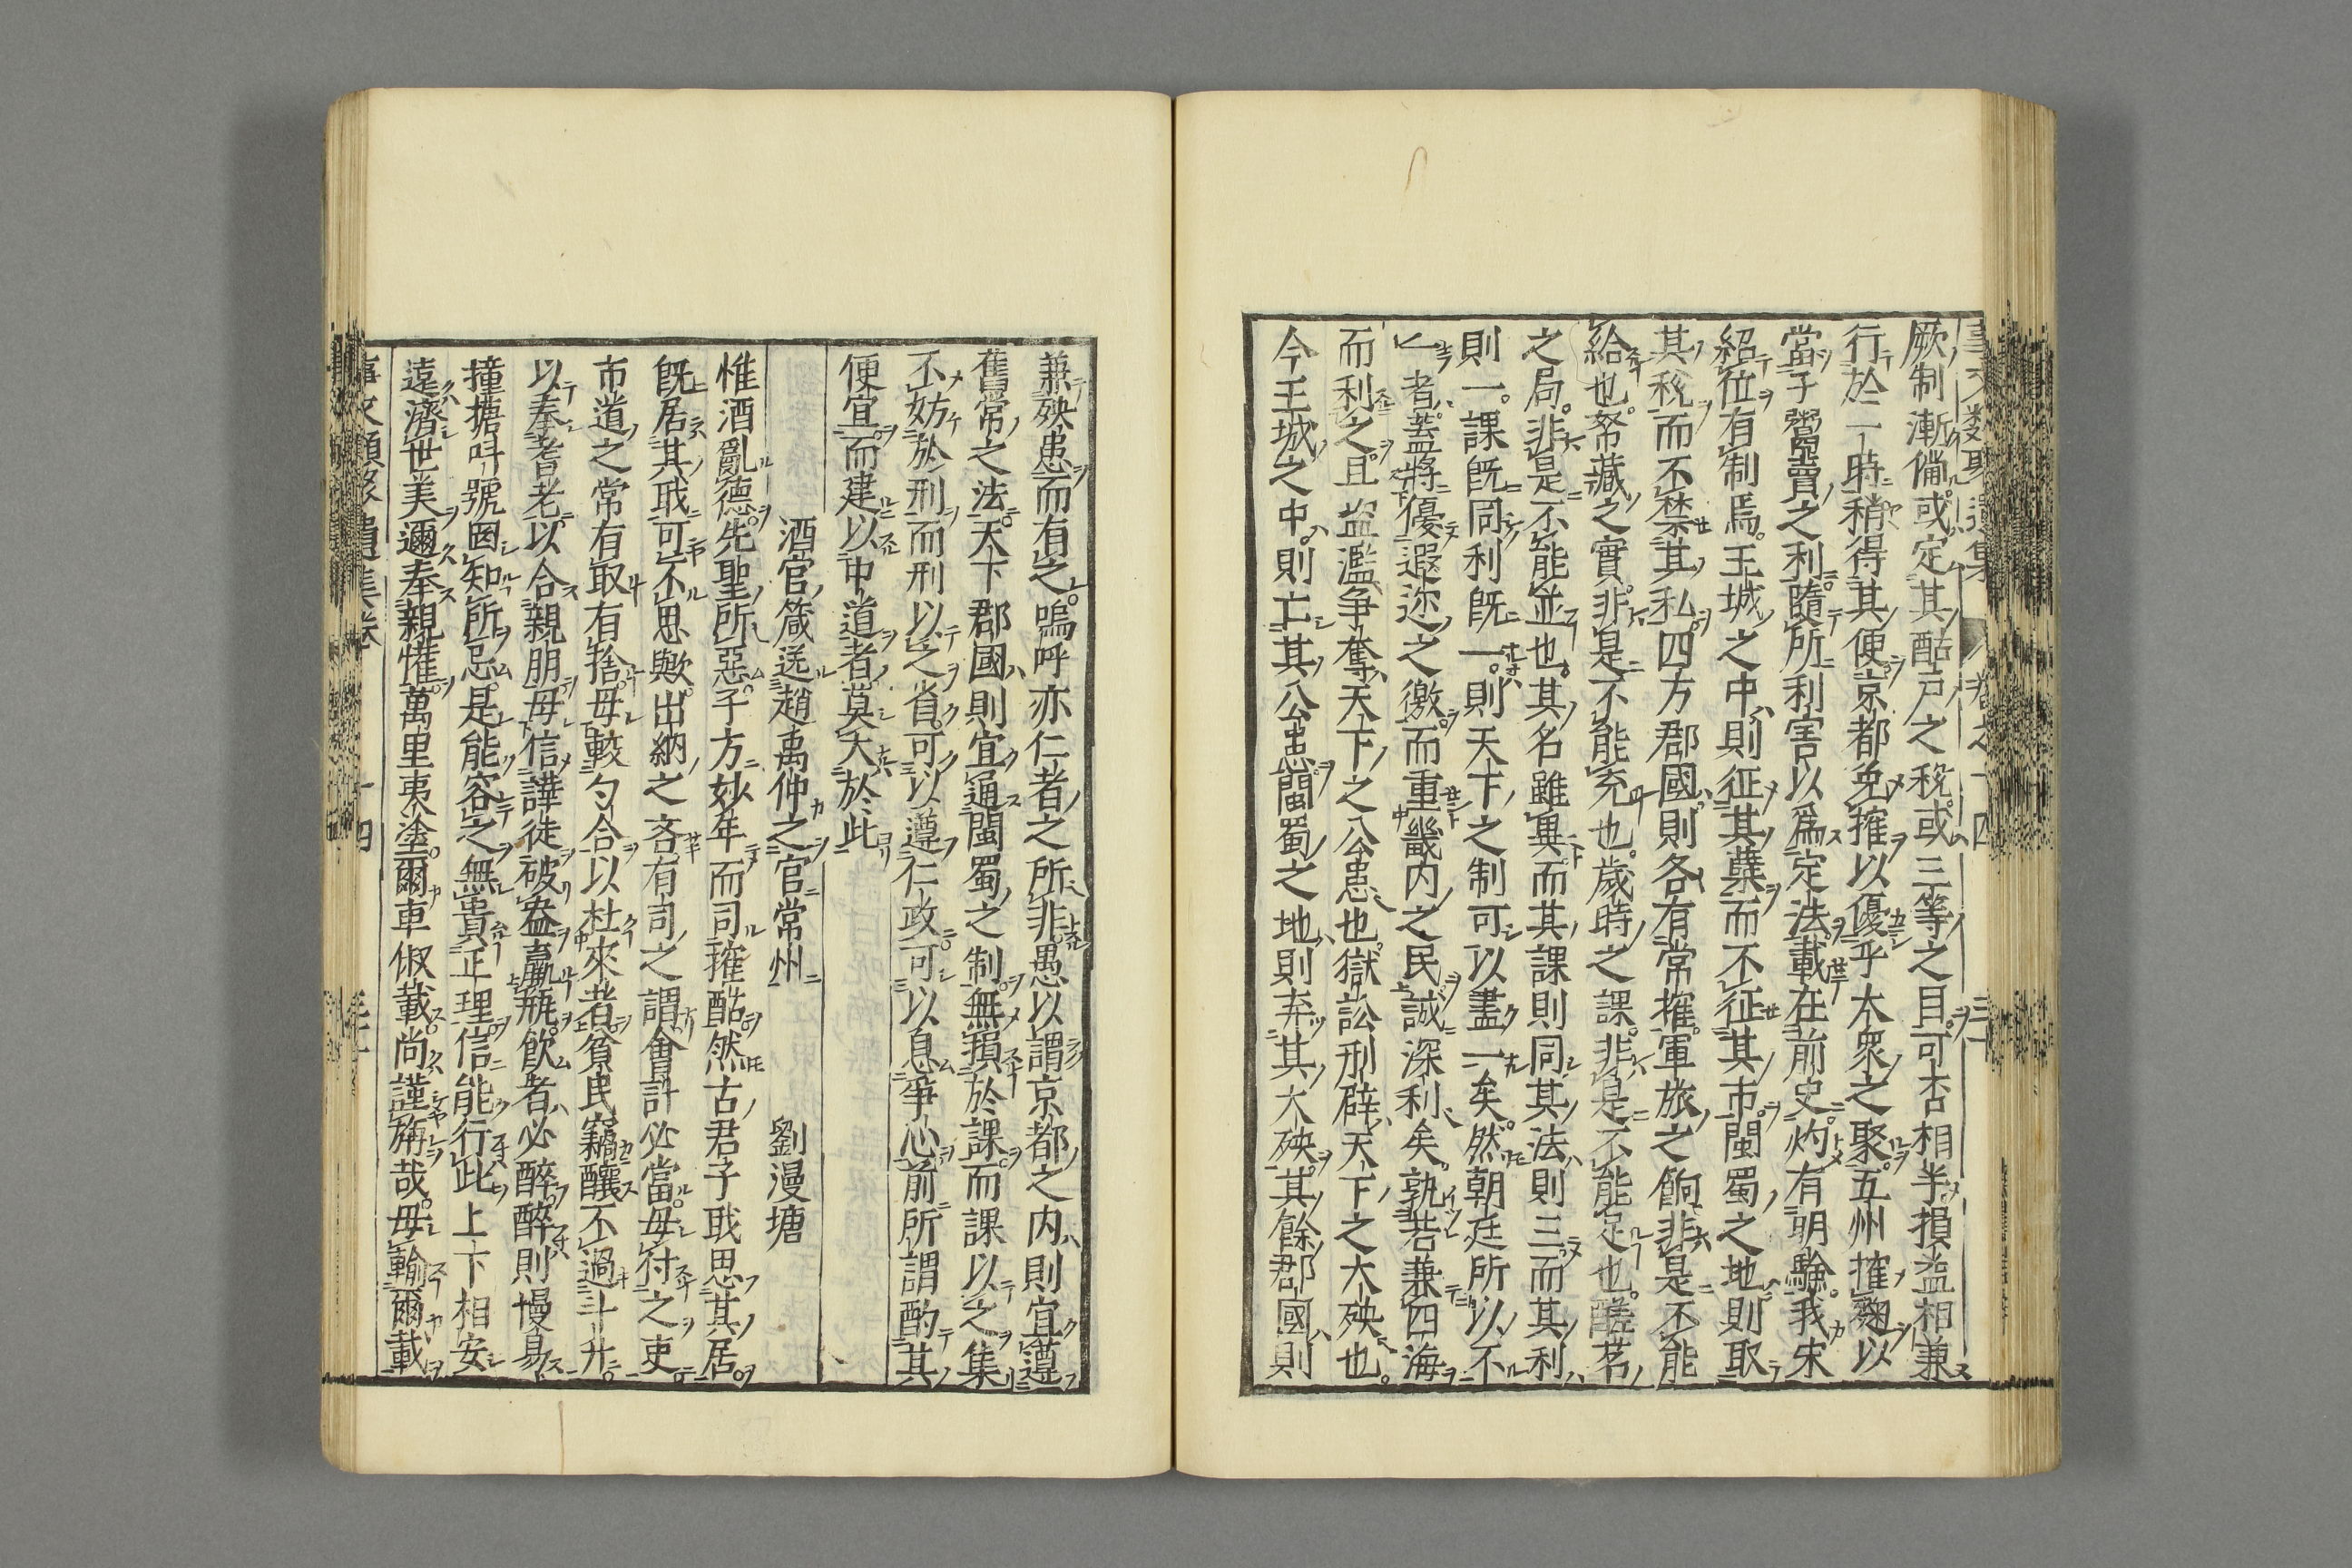 厥制漸備或定其酤戸之税或三等之目可否相半損益相兼
行於一時稍得其便京都免搉以優乎大衆之聚五州搉麴以
當子鬻賣之利隨所利害以爲定法載在前史灼有明驗我宋
紹位有制焉王城之中則征其蘖而不征其市閩蜀之地則取
其税而不禁其私四方郡國則各有常搉軍旅之餉非是不能
給也帑藏之實非是不能充也歳時之課非是不能足也醝茗
之局非是不能並也其名雖異而其課則同其法則三而其利
則一課既同利既一則天下之制可以盡一矣然朝廷所以不
一者蓋將優遐迩之徼而重畿内之民誠深利矣孰若兼四海
而利之且盗濫争奪天下之公患也獄訟刑辟天下之大殃也
今王城之中則亡其公患閩蜀之地則弃其大殃其餘郡國則
兼殃患而有之嗚呼亦仁者之所非愚以謂京都之内則宜遵
舊常之法天下郡國則宜通閩蜀之制無損於課而課以之集
不妨於刑而刑以之省可以遵仁政可以息爭心前所謂酌其
便宜而建以中道者莫大於此
酒官箴送趙禹仲之官常州 劉漫塘
惟酒亂德先聖所惡子方妙年而司搉酤然古君子戝思其居
既居其戝可不思歟出納之吝有司之謂會計必當毋付之吏
市道之常有取有捨毋較勺合以杜來者貧民竊釀不過斗升
以奉耆老以合親朋毋信譁徒破盎羸瓶飲者必醉醉則慢易
撞搪呌號罔知所忌是能容之無貴正理信能行此上下相安
遠濟世美邇奉親懽萬里夷塗爾車俶載尚謹旃哉毋輸爾載